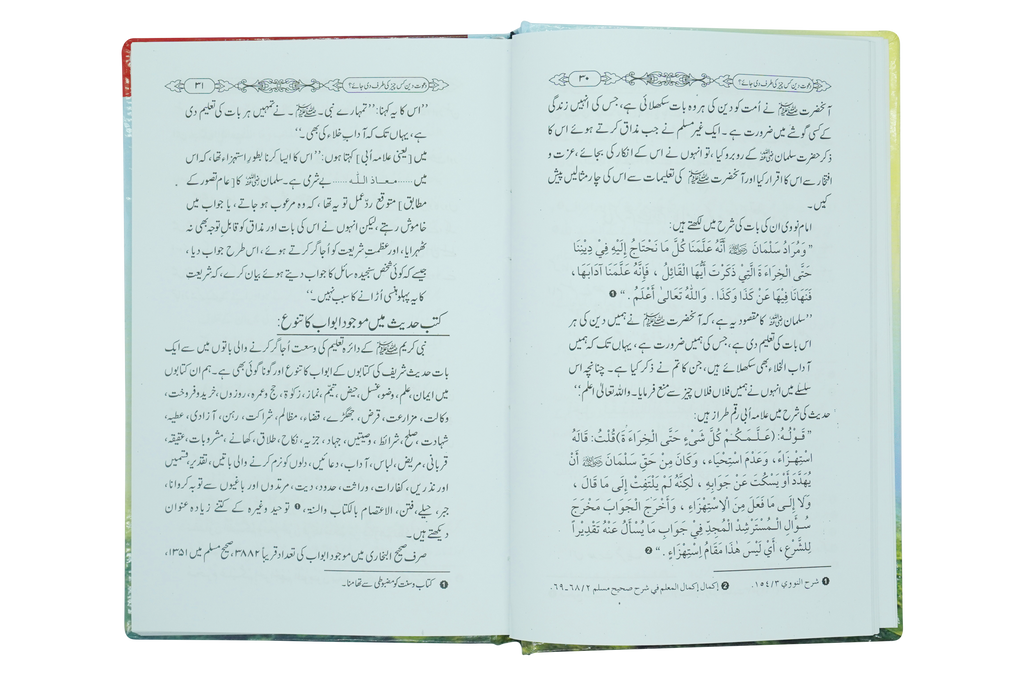 دعوت دین کس چیز کی طرف دی جائے؟
۳۰
آنحضرت ﷺ نے اُمت کو دین کی ہر وہ بات سکھلائی ہے، جس کی انہیں زندگی
کے کسی گوشے میں ضرورت ہے۔ ایک غیر مسلم نے جب مذاق کرتے ہوئے اس کا
ذکر حضرت سلمان رضی اللہ عنہ کے روبرو کیا، تو انہوں نے اس کے انکار کی بجائے، عزت و
افتخار سے اس کا اقرار کیا اور آنحضرت ﷺ کی تعلیمات سے اس کی چار مثالیں پیش
کیں۔
امام نووی ان کی بات کی شرح میں لکھتے ہیں:
”وَمُرَادُ سَلْمَانَ رضی اللہ عنہ أَنَّهُ عَلَّمَنَا كُلَّ مَا نَحْتَاجُ إِلَيْهِ فِيْ دِيْنِنَا
حَتَّى الْخِرَاءَةَ الَّتِيْ ذَكَرْتَ أَيُّهَا الْقَائِلُ، فَإِنَّهُ عَلَّمَنَا آدَابَهَا،
فَنَهَانَا فِيْهَا عَنْ كَذَا وَكَذَا. وَاللّٰهُ تَعَالىٰ أَعْلَمُ.“ ❶
’’سلمان رضی اللہ عنہ کا مقصود یہ ہے، کہ آنحضرت ﷺ نے ہمیں دین کی ہر
اس بات کی تعلیم دی ہے، جس کی ہمیں ضرورت ہے، یہاں تک کہ ہمیں
آداب الخلاء بھی سکھلائے ہیں، جن کا تم نے ذکر کیا ہے۔ چنانچہ اس
سلسلے میں انہوں نے ہمیں فلاں فلاں چیز سے منع فرمایا۔ واللہ تعالیٰ اعلم‘‘
حدیث کی شرح میں علامہ اُبی رقم طراز ہیں:
”قَوْلُهُ: (عَلَّمَكُمْ كُلَّ شَيْءٍ حَتَّى الْخِرَاءَةَ) قُلْتُ: قَالَهُ
اسْتِهْزَاءً، وَعَدْمَ اسْتِحْيَاء، وَكَانَ مِنْ حَقِّ سَلْمَانَ رضی اللہ عنہ أَنْ
يُهَدِّدَ أَوْ يَسْكُتَ عَنْ جَوَابِهِ، لٰكِنَّهُ لَمْ يَلْتَفِتْ إِلَى مَا قَالَ،
وَلَا إِلَى مَا فَعَلَ مِنَ الْاِسْتِهْزَاءِ، وَأَخْرَجَ الْجَوَابَ مَخْرَجَ
سُؤَالِ الْمُسْتَرْشِدِ الْمُجِدِّ فِيْ جَوَابِ مَا يُسْأَلُ عَنْهُ تَقْدِيْرًا
لِلشَّرْعِ، أَيْ لَيْسَ هٰذَا مَقَامُ إِسْتِهْزَاءٍ.“ ❷
❶ شرح النووي ۱٥٤/۳. ❷ إكمال إكمال المعلم في شرح صحيح مسلم ۲/ ٦۸-٦۹.
دعوت دین کس چیز کی طرف دی جائے؟
۳۱
’’اس کا یہ کہنا: ’’تمہارے نبی۔ ﷺ۔ نے تمہیں ہر بات کی تعلیم دی
ہے، یہاں تک کہ آداب خلاء کی بھی۔‘‘
میں [یعنی علامہ اُبی] کہتا ہوں: ’’اس کا ایسا کرنا بطورِ استہزاء تھا، کہ اس
میں ...... معاذ اللہ ...... بے شرمی ہے۔ سلمان رضی اللہ عنہ کا [عام تصور کے
مطابق] متوقع ردّ عمل تو یہ تھا، کہ وہ مرعوب ہو جاتے، یا جواب میں
خاموش رہتے، لیکن انہوں نے اس کی بات اور مذاق کو قابلِ توجہ بھی نہ
ٹھہرایا، اور عظمتِ شریعت کو اُجاگر کرتے ہوئے، اس طرح جواب دیا،
جیسے کہ کوئی شخص سنجیدہ سائل کا جواب دیتے ہوئے بیان کرے، کہ شریعت
کا یہ پہلو ہنسی اُڑانے کا سبب نہیں۔‘‘
کتب حدیث میں موجود ابواب کا تنوع:
نبی کریم ﷺ کے دائرہ تعلیم کی وسعت اُجاگر کرنے والی باتوں میں سے ایک
بات حدیث شریف کی کتابوں کے ابواب کا تنوع اور گوناگوئی بھی ہے۔ ہم ان کتابوں
میں ایمان، علم، وضو، غسل، حیض، تیمّم، نماز، زکوٰۃ، حج وعمرہ، روزوں، خرید وفروخت،
وکالت، مزارعت، قرض، جھگڑے، قضاء، مظالم، شراکت، رہن، آزادی، عطیہ،
شہادت، صلح، شرائط، وصیتیں، جہاد، جزیہ، نکاح، طلاق، کھانے، مشروبات، عقیقہ،
قربانی، مریض، لباس، آداب، دعائیں، دلوں کو نرم کرنے والی باتیں، تقدیر، قسمیں
اور نذریں، کفارات، وراثت، حدود، دیت، مرتدوں اور باغیوں سے توبہ کروانا،
جبر، حیلے، فتن، الاعتصام بالکتاب والسنۃ، ❶ توحید وغیرہ کے کتنے زیادہ عنوان
دیکھتے ہیں۔
صرف صحیح البخاری میں موجود ابواب کی تعداد تقریباً ۳۸۸۲، صحیح مسلم میں ۱۳۵۱،
❶ کتاب وسنت کو مضبوطی سے تھامنا۔